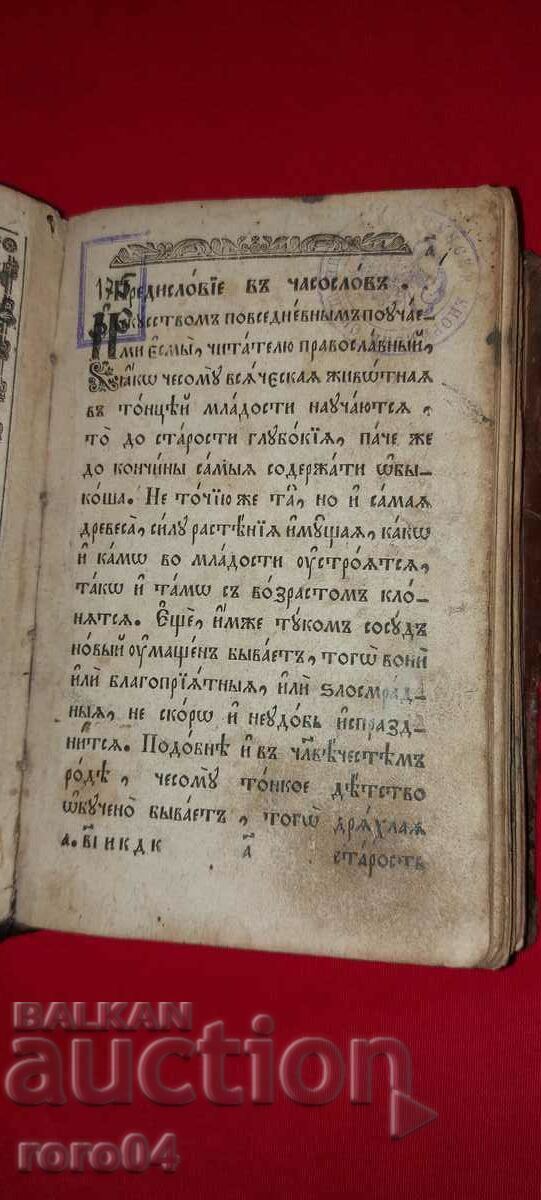 а҃
Предисловїе въ часословъ.
Искусствомъ повседневнымъ поучае-
ми єсмы̀, читателю православный,
ꙗ҆́кѡ чесомꙋ всѧческаѧ живѡтнаѧ
въ то́нцѣй мла́дости наꙋчаютсѧ,
то̀ до ста́рости глꙋбокїѧ, паче же
до кончи́ны самыѧ содержати ѡбы-
коша. Не то́чїю же та̑, но и҆ самаѧ
древеса̀, си́лꙋ расте́нїѧ и҆мꙋщаѧ, ка́кѡ
и҆ ка́мѡ во мла́дости оустро́ѧтсѧ,
та́кѡ и҆ та́мѡ съ во́зрастомъ кло-
нѧтсѧ. Єщѐ, и҆́мже тꙋ́комъ сосꙋ́дъ
новый оумащенъ быва́етъ, тогѡ̀ вони̑
и҆лѝ благопрїѧ́тныѧ, и҆лѝ ѕлосмра́д-
ныѧ, не ско́рѡ и҆ неꙋдо́бь и҆спразд-
нитсѧ. Подо́бнѣ и҆ въ чл҃вѣчестѣмъ
ро́дѣ, чесомꙋ̀ то́нкое дѣ́тство
ѡбꙋчено̀ быва́етъ, тогѡ̀ дрѧ́хлаѧ
а. в҃і и к д к а҃ ста́рость
BALKAN
auction
roro04